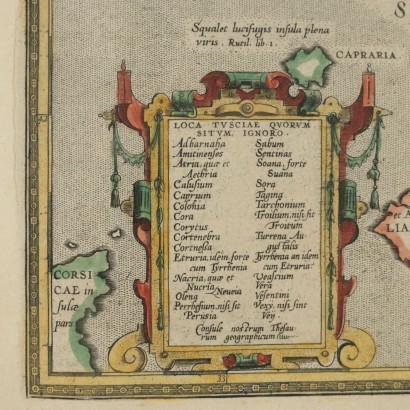 S
Squalet lucifugis insula plena
viris. Rutil. lib. 1.
CAPRARIA
LOCA TVSCIAE QVORVM
SITVM IGNORO.
Adbarnaha
Amitinenses
Atria, quæ et
Aethria
Calusium
Caprium
Colonia
Cora
Corytus
Cortenebra
Cortnesa
Etruria, idem forte
cum Tyrrhenia
Nacria, quæ et
Nucria
Noveria
Oleng
Perrhesium, nisi sit
Perusia
Sabum
Sentinas
Soana, forte
Suana
Sora
Tagina
Tarchonium
Troilium, nisi sit
Troitum
Turrena Au
gustalis
Tyrrhenia an idem
cum Etruria
Vegscium
Vera
Vesentini
Vexy, nisi sint
Veij
Consule nostrum Thesau
rum geographicum
CORSI
CAE in
sulæ
pars
LIA
33